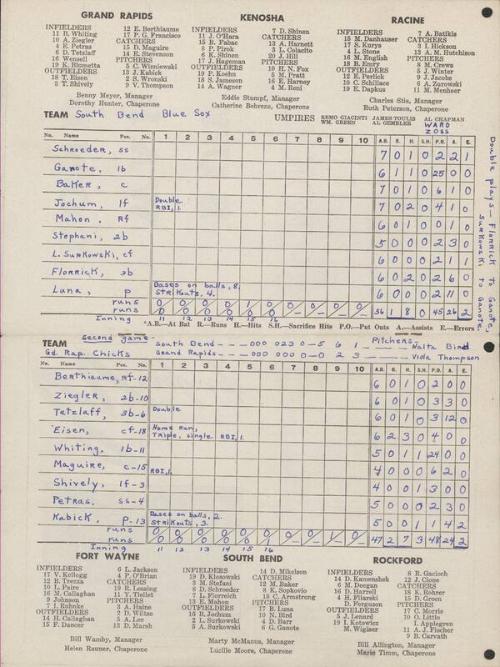 GRAND RAPIDS
INFIELDERS
11 B. Whiting
10 A. Ziegler
4 E. Petras
6 D. Tetzlaff
16 Wensell
19 K. Blumetta
OUTFIELDERS
18 T. Eisen
3 T. Shively
12 E. Berthiaume
17 P. G. Francisco
CATCHERS
15 D. Maguire
14 R. Stevenson
PITCHERS
5 C. Wisniewski
13 J. Kabick
2 S. Wronski
9 V. Thompson
Benny Meyer, Manager
Dorothy Hunter, Chaperone
KENOSHA
INFIELDERS
11 J. O'Hara
15 R. Fabac
5 P. Pirok
6 E. Shinen
17 J. Hageman
OUTFIELDERS
19 P. Koehn
18 S. Jameson
14 A. Wagner
7 D. Shinen
CATCHERS
13 A. Harnett
3 L. Colacito
20 J. Hill
PITCHERS
10 H. N. Fox
5 M. Pratt
16 E. Harvey
4 M. Roni
Eddie Stumpf, Manager
Catherine Behrens, Chaperone
RACINE
INFIELDERS
15 M. Danhauser
17 S. Kurys
4 L. Stone
16 M. English
18 E. Emry
OUTFIELDERS
12 E. Perlick
19 C. Schillace
11 E. Dapkus
7 A. Batikis
CATCHERS
3 I. Hickson
13 A. M. Hutchison
PITCHERS
8 M. Crews
5 J. Winter
9 J. Jacobs
6 A. Zurowski
11 M. Menheer
Charles Stis, Manager
Ruth Peterson, Chaperone
TEAM South Bend Blue Sox
UMPIRES REMO GIACINTI JAMES TOULIS AL CHAPMAN
WM. GREEN AL GEMBLER WARD
ZOSS
No. Name Pos. No. 1 2 3 4 5 6 7 8 9 10 A.B. R. H. S.H. P.O. A. E.
Schroeder, ss 7 0 1 0 2 2 1
Ganote, 1b 6 1 1 0 25 0 0
Baker, c 7 0 1 0 6 1 0
Jochum, lf Double RBI, 1. 7 0 2 0 4 1 0
Mahon, Rf 6 0 1 0 0 1 0
Stephani, 2b 5 0 0 0 2 3 0
L. Surkowski, cf 6 0 0 0 2 1 1
Florrick, 3b 6 0 2 0 2 6 0
Luna, p Bases on balls, 8, Strikouts, 4. 6 0 0 0 2 11 0
runs 0 0 0 0 1 0
runs 0 0 0 0 0 0 56 1 8 0 45 26 2
Inning 11 12 13 14 15 16
*A.B.—At Bat R.—Runs H.—Hits S.H.—Sacrifice Hits P.O.—Put Outs A.—Assists E.—Errors
Double plays - Florrick To Ganote,
Surkowski To Ganote.
Second game- South Bend - - - 000 023 0-5 6 1 Pitchers- Walts Bird
TEAM Gd. Rap. Chicks Grand Rapids- - - 000 000 0-0 2 3 Vida Thompson
No. Name Pos. No. 1 2 3 4 5 6 7 8 9 10 A.B. R. H. S.H. P.O. A. E.
Berthiaume, rf-12 6 0 1 0 2 0 0
Ziegler, 2b-10 6 0 1 0 3 3 0
Tetzlaff, 3b-6 Double 6 0 1 0 3 12 0
Eisen, cf-18 Home Run, Triple, single. RBI, 1. 6 2 3 0 4 0 0
Whiting, 1b-11 5 0 1 1 24 0 0
Maguire, c-15 RBI, 1. 4 0 0 0 6 2 0
Shively, lf-3 4 0 0 1 3 0 0
Petras, ss-4 5 0 0 0 2 3 0
Kabick, p-13 Bases on balls, 2. Strikouts, 3. 5 0 0 1 1 4 2
runs 0 0 0 0 0 1
runs 47 2 7 3 48 24 2
Inning 11 12 13 14 15 16
FORT WAYNE
INFIELDERS
17 V. Kellogg
12 B. Trezza
10 L. Paire
16 M. Callaghan
9 Johnson
7 I. Ruhnke
OUTFIELDERS
14 H. Callaghan
15 F. Dancer
6 L. Jackson
4 P. O'Brian
CATCHERS
19 R. Lessing
11 Y. Tiellet
PITCHERS
3 A. Haine
5 D. Wiltse
8 A. Lee
13 D. Marsh
Bill Wamby, Manager
Helen Rauner, Chaperone
SOUTH BEND
INFIELDERS
19 D. Klosowski
3 M. Stefani
6 D. Schroeder
7 L. Florreich
13 E. Mahon
OUTFIELDERS
18 B. Jochum
2 L. Surkowski
5 A. Surkowski
14 D. Mikelson
CATCHERS
12 M. Baker
8 K. Sopkovic
15 C. Armstrong
PITCHERS
17 B. Luna
10 N. Bird
4 D. Barr
6 G. Ganote
Marty McManus, Manager
Lucille Moore, Chaperone
ROCKFORD
INFIELDERS
14 D. Kamenshek
6 M. Deegan
16 D. Harrell
4 H. Filarski
D. Ferguson
OUTFIELDERS
5 J. Lenard
19 I. Kotowicz
M. Wigiser
8 R. Gacioch
12 J. Cione
CATCHERS
18 K. Rohrer
15 D. Green
PITCHERS
17 C. Morris
10 O. Little
1 J. Applegren
11 A. J. Fischer
9 B. Carveth
Bill Allington, Manager
Marie Timm, Chaperone